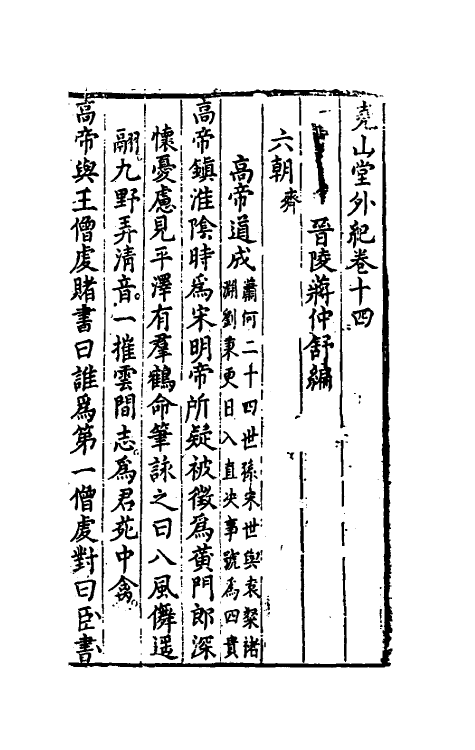 堯山堂外紀卷十四
晉陵蔣仲舒編
六朝齊
高帝道成蕭何二十四世孫宋世與袁粲禇
淵劉秉更日入直决事號爲四貴
高帝鎮淮陰時爲宋明帝所疑被徵爲黃門郎深
懷憂慮見平澤有羣鶴命筆詠之曰八風儛遥
翮九野弄清音。一摧雲間志。爲君苑中禽。
高帝與王僧虔賭書曰誰爲第一僧虔對曰臣書